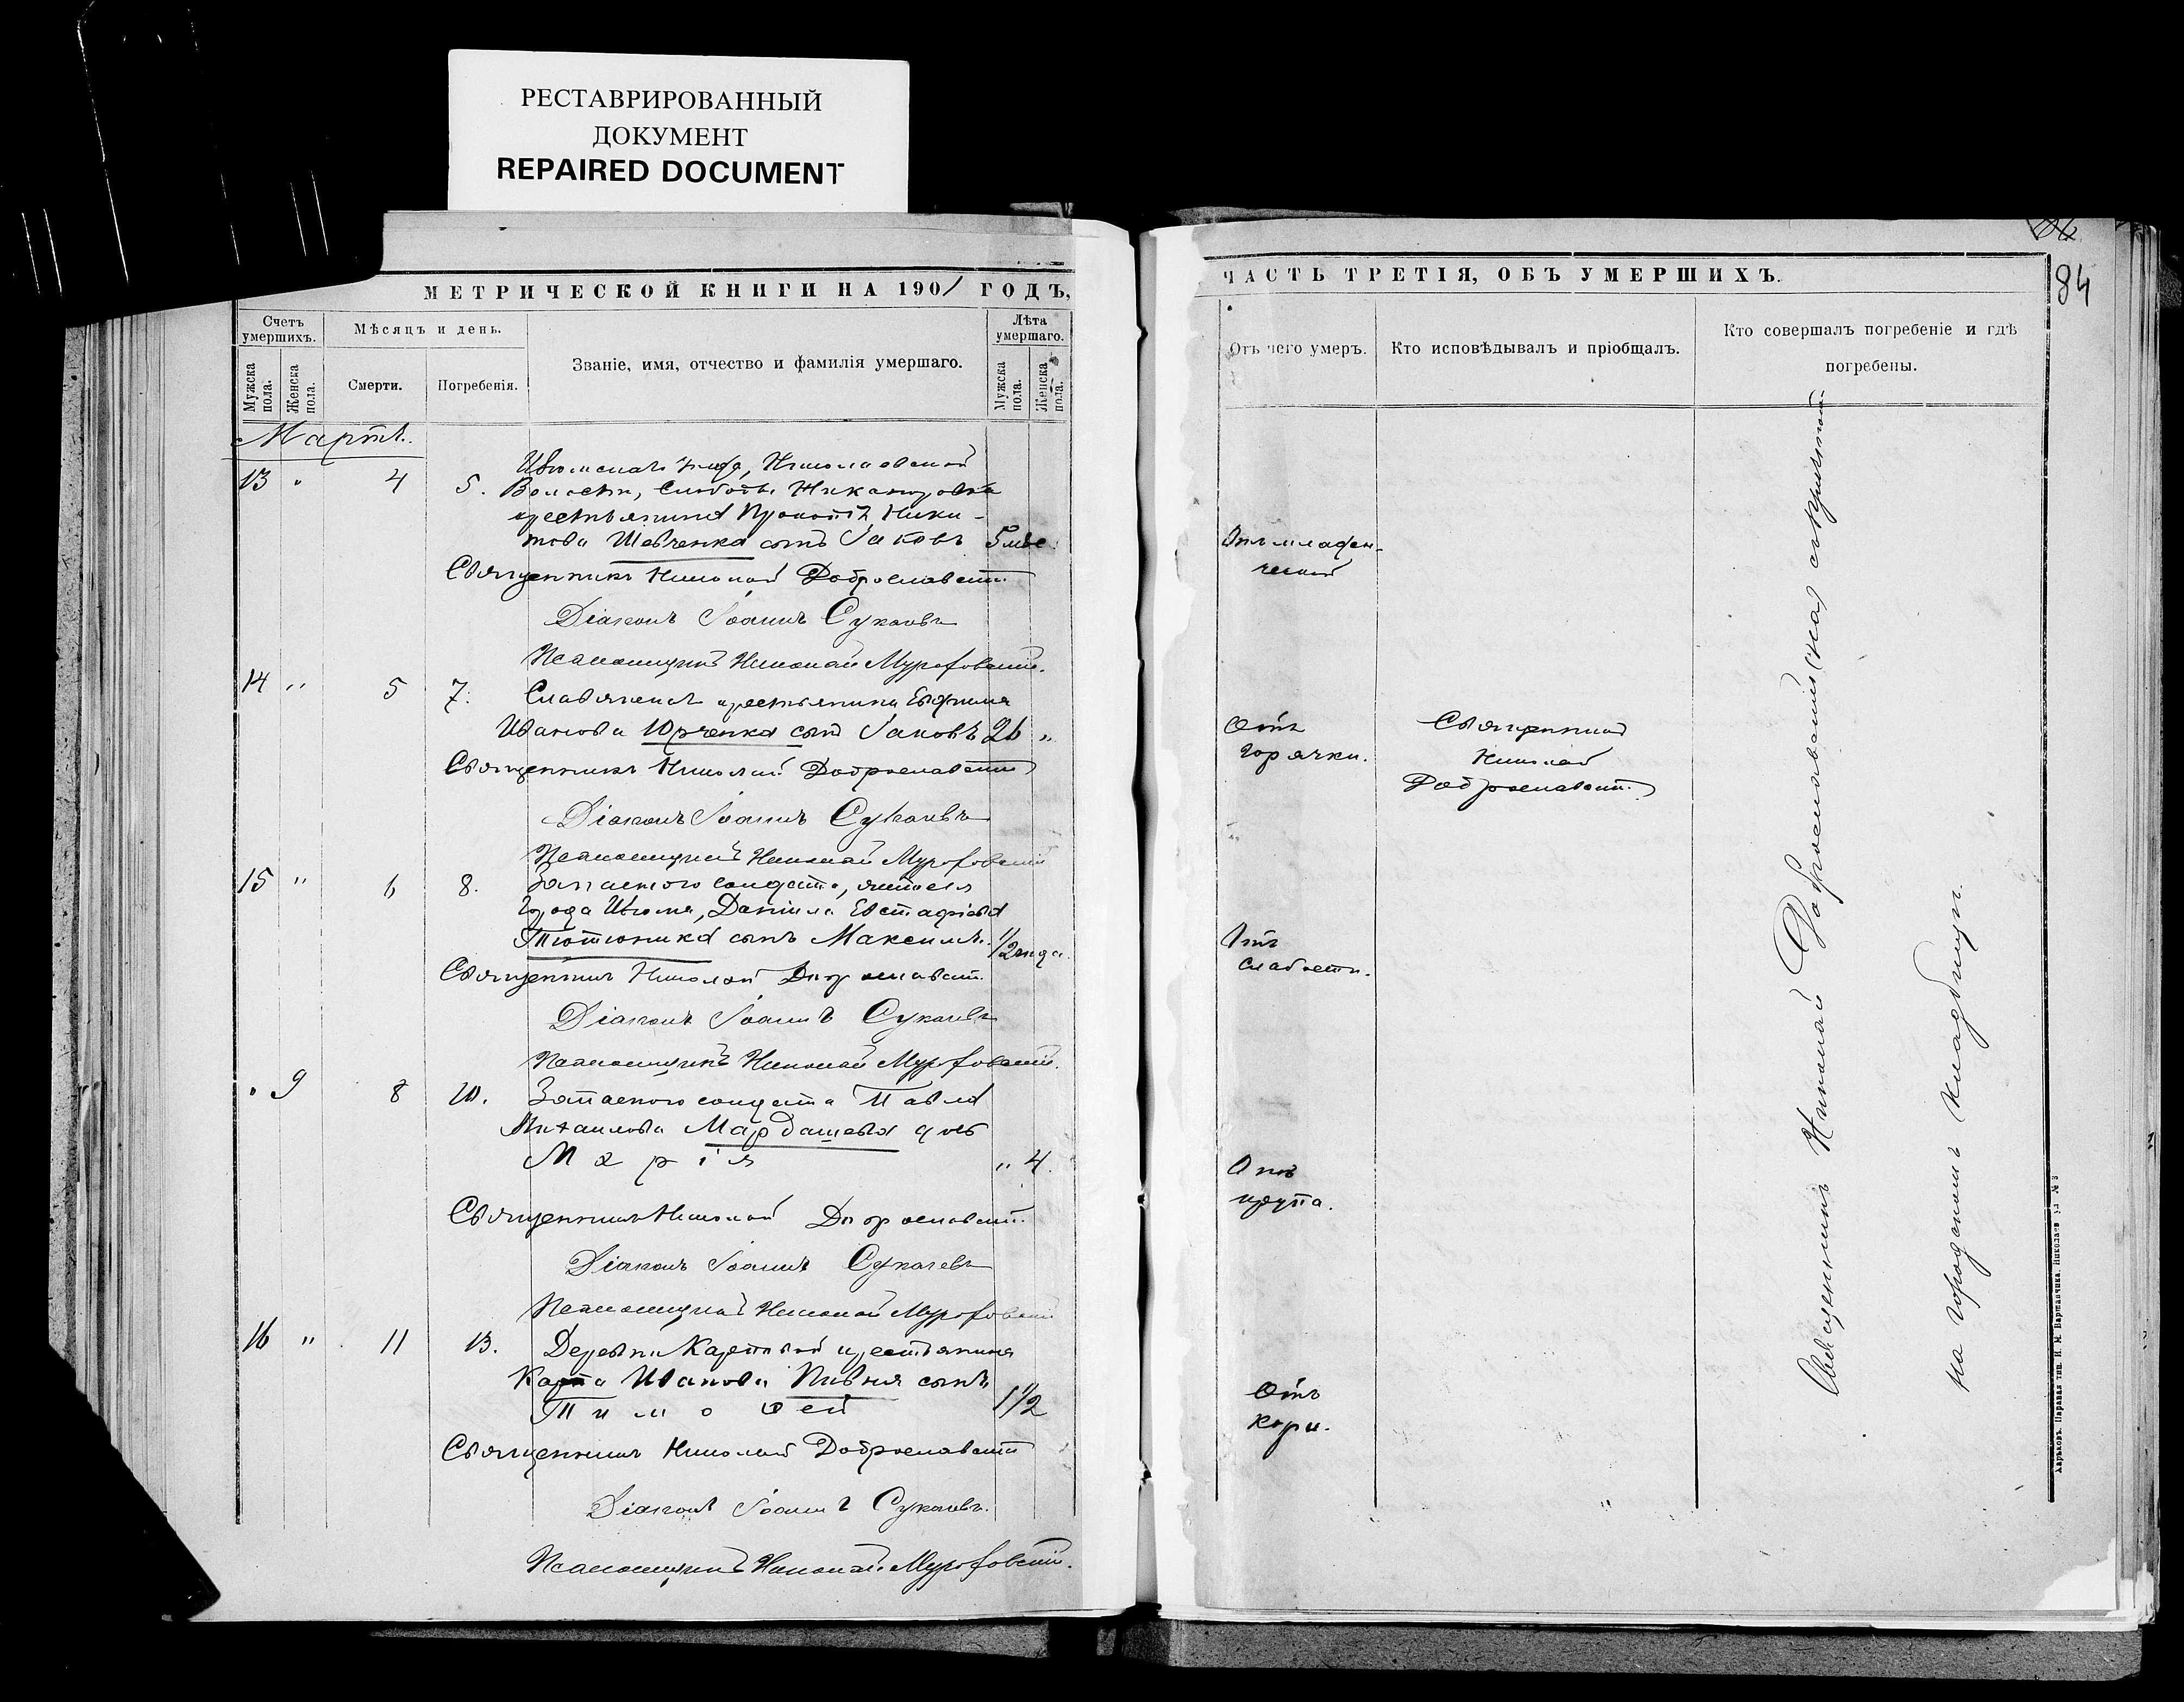 РЕСТАВРИРОВАННЫЙ
ДОКУМЕНТ
REPAIRED DOCUMENT
МЕТРИЧЕСКОЙ КНИГИ НА 1901 ГОДЪ,
Счетъ умершихъ.
Мѣсяцъ и день.
Званіе, имя, отчество и фамилія умершаго.
Лѣта умершаго.
Мужска пола.
Женска пола.
Смерти.
Погребенія.
Мужска пола.
Женска пола.
Мартъ.
Изюмскаго уѣзда, Николаевской
13 " 4 5. Волости, слободы
крестьянина Прокопія Ники-
това Шевченка сынъ Іаковъ 5 мѣс.
Священникъ Николай Доброславскій
Діаконъ Іоаннъ Сукачевъ
Псаломщикъ Николай
14 " 5 7. Славянска крестьянина Евфимія
Иванова Юрченка сынъ Іаковъ 26 "
Священникъ Николай Доброславскій
Діаконъ Іоаннъ Сукачевъ
Псаломщикъ Николай
15 " 6 8. Запаснаго солдата, жителя
Города Изюма, Даніила Евстафіева
Тютюника сынъ Максимъ. 1/2 года.
Священникъ Николай Доброславскій
Діаконъ Іоаннъ Сукачевъ
Псаломщикъ Николай
" 9 8 10. Запаснаго солдата Павла
Михаилова Мардашева дочь
Марія " 4.
Священникъ Николай Доброславскій
Діаконъ Іоаннъ Сукачевъ
Псаломщикъ Николай
16 " 11 13. Деревни крестьянина
Карпа Иванова Пивня сынъ
Тимоѳей 1 1/2
Священникъ Николай Доброславскій
Діаконъ Іоаннъ Сукачевъ.
Псаломщикъ Николай
84
ЧАСТЬ ТРЕТІЯ, ОБЪ УМЕРШИХЪ.
Отъ чего умеръ.
Кто исповѣдывалъ и пріобщалъ.
Кто совершалъ погребеніе и гдѣ
погребены.
Отъ младен-
ческой
Отъ
горячки.
Священникъ
Николай
Доброславскій
Отъ
слабости.
Отъ
крупа.
Отъ
кори.
Священникъ Николай Доброславскій
на городскомъ кладбищѣ.